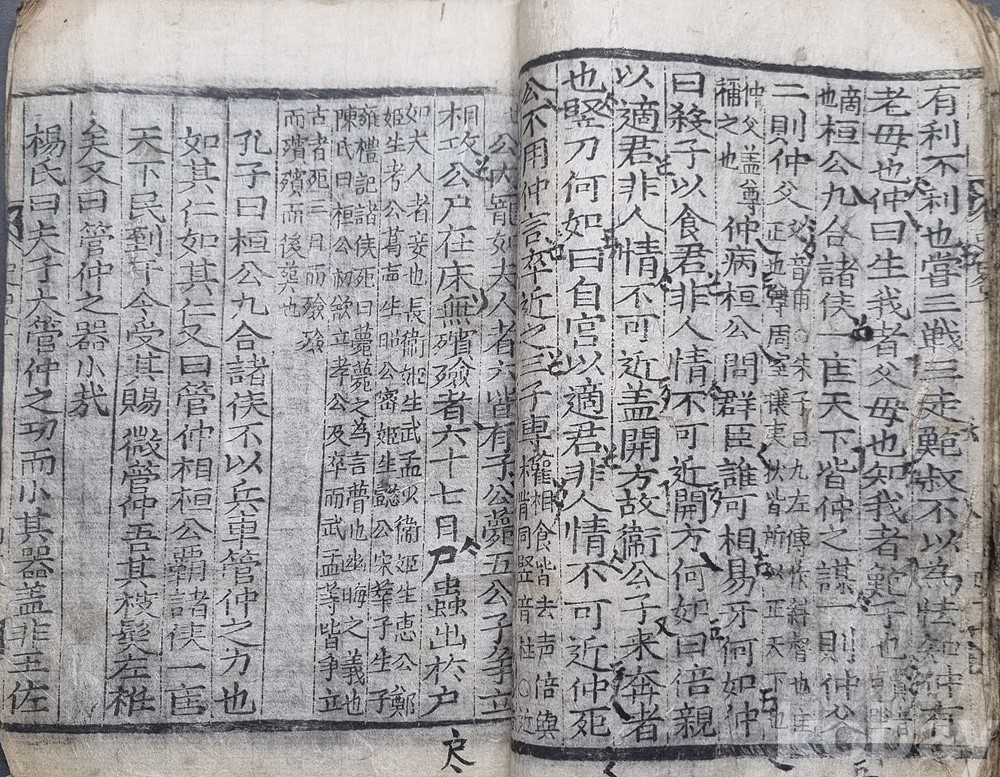 有利不利也嘗三戰三走鮑叔不以為怯知仲有
老母也仲曰生我者父母也知我者鮑子也
桓公九合諸侯一匡天下皆仲之謀一則仲父
二則仲父
仲病桓公問群臣誰可相易牙何如仲
曰殺子以食君非人情不可近開方何如曰倍親
以適君非人情不可近盖開方故衛公子来奔者
也竪刀何如曰自宮以適君非人情不可近仲死
公不用仲言卒近之三子專權
相食皆去声倍與
公內寵如夫人者六皆有子公薨五公子爭立
相攻公尸在床無殯殮者六十七日尸蟲出於户
如夫人者妾也長衛姬生武孟少衛姬生惠公鄭
姬生孝公葛嬴生昭公密姬生懿公宋華子生子
雍禮記諸侯死曰薨薨之為言瞢也幽晦之義也
陳氏曰桓公初欲立孝公及卒而武孟等皆爭立
古者死三日而殮殮
而殯殯而後葬也
孔子曰桓公九合諸侯不以兵車管仲之力也
如其仁如其仁又曰管仲相桓公霸諸侯一匡
天下民到于今受其賜微管仲吾其被髮左衽
矣又曰管仲之器小哉
楊氏曰夫子大管仲之功而小其器盖非王佐